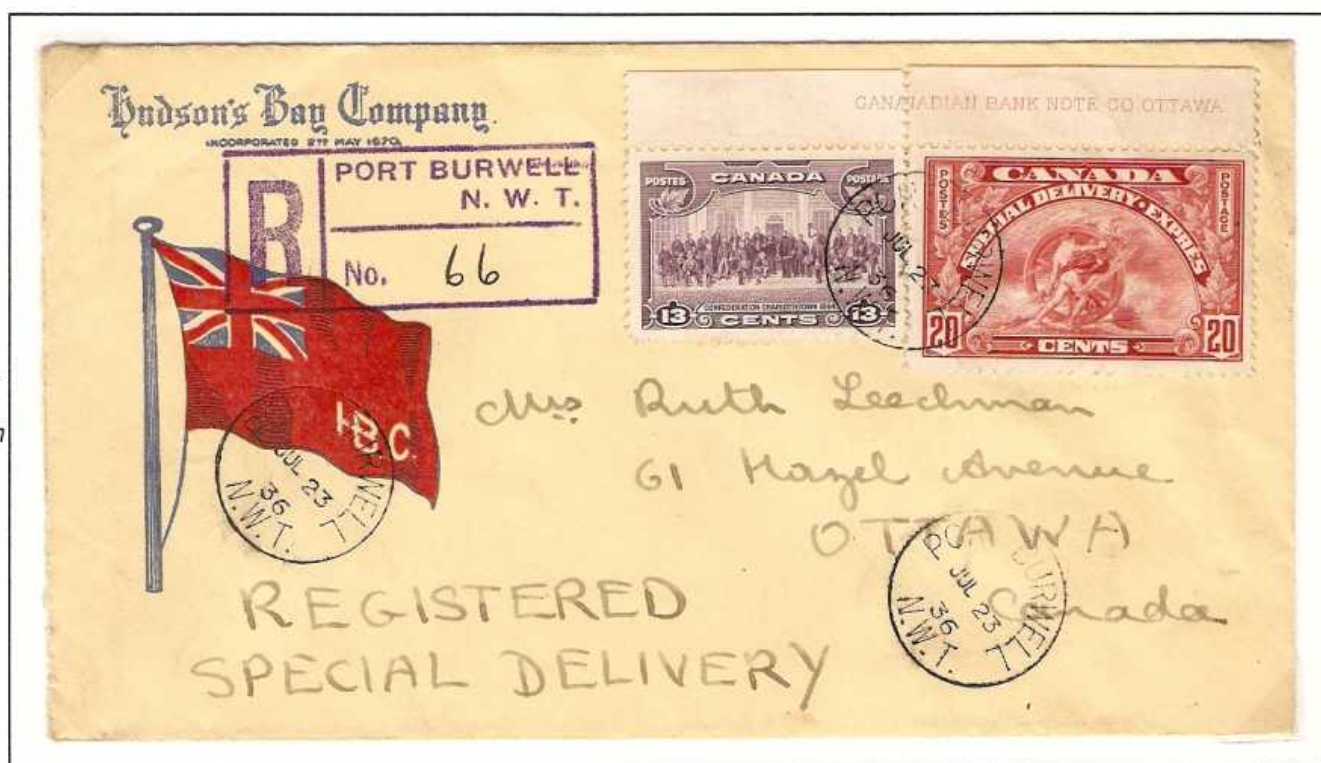 Hudson's Bay Company.
INCORPORATED 2ND MAY 1670.
R
PORT BURWELL
N. W. T.
No. 66
CANANADIAN BANK NOTE CO OTTAWA
POSTES CANADA POSTAGE
CONFEDERATION CHARLOTTETOWN 1864
13 CENTS 13
POSTES CANADA POSTAGE
SPECIAL DELIVERY·EXPRES
20 CENTS 20
JUL 23
36
N.W.T.
H.B.C.
Mrs Ruth Leechman
61 Hazel Avenue
OTTAWA
Canada
PORT BURWELL
JUL 23
36
N.W.T.
PORT BURWELL
JUL 23
36
N.W.T.
REGISTERED
SPECIAL DELIVERY